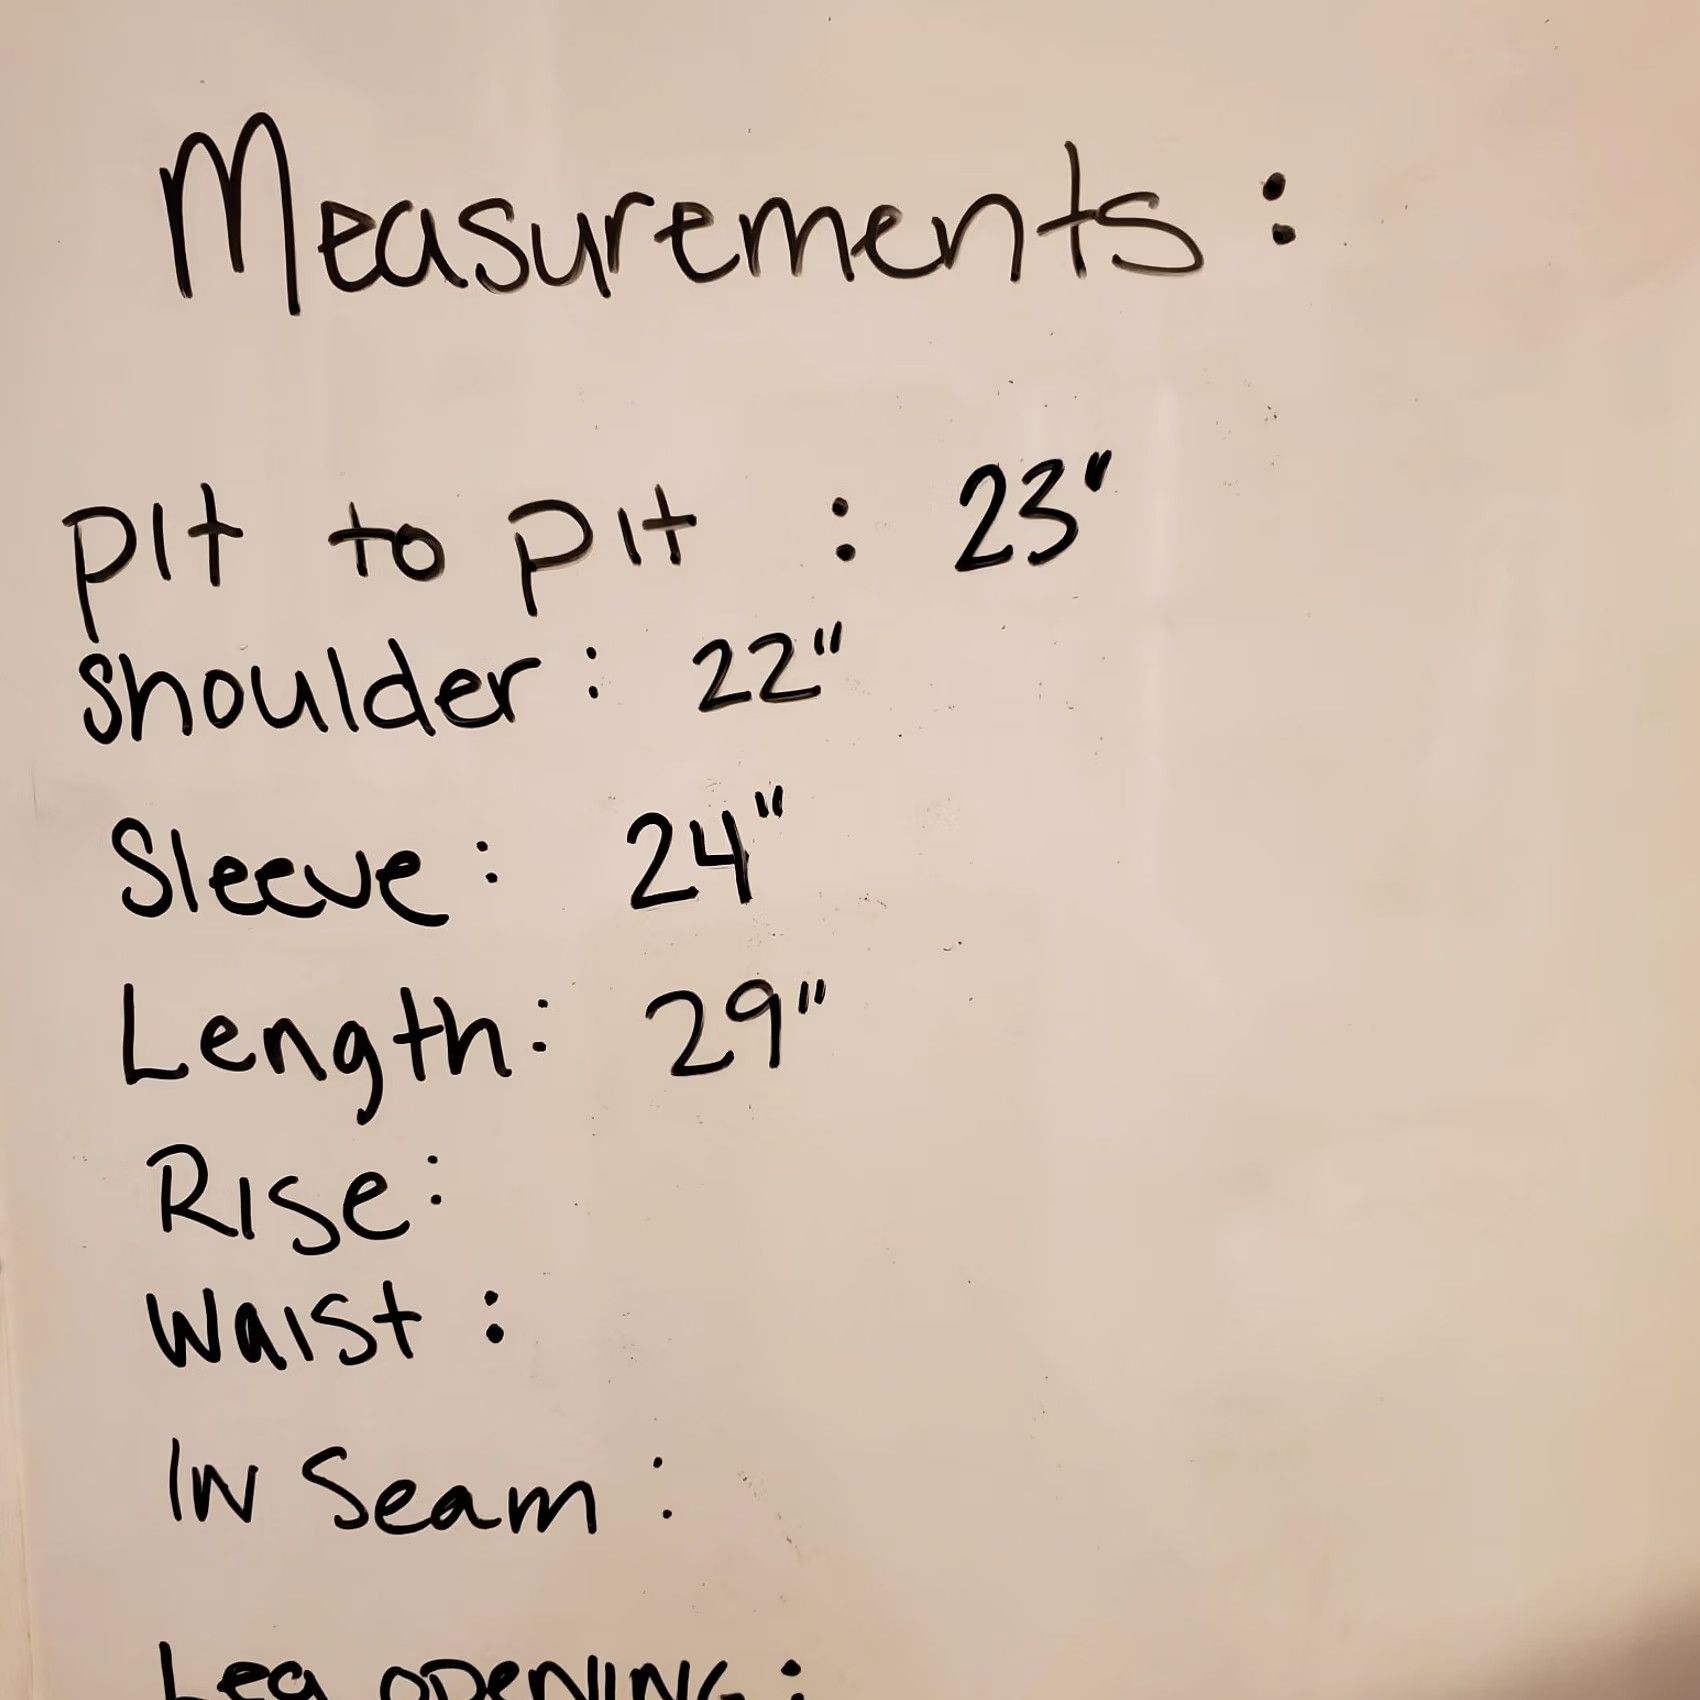 Measurements:
pit to pit : 23"
shoulder: 22"
Sleeve: 24"
Length: 29"
Rise:
Waist:
IN Seam:
Leg OPENING: